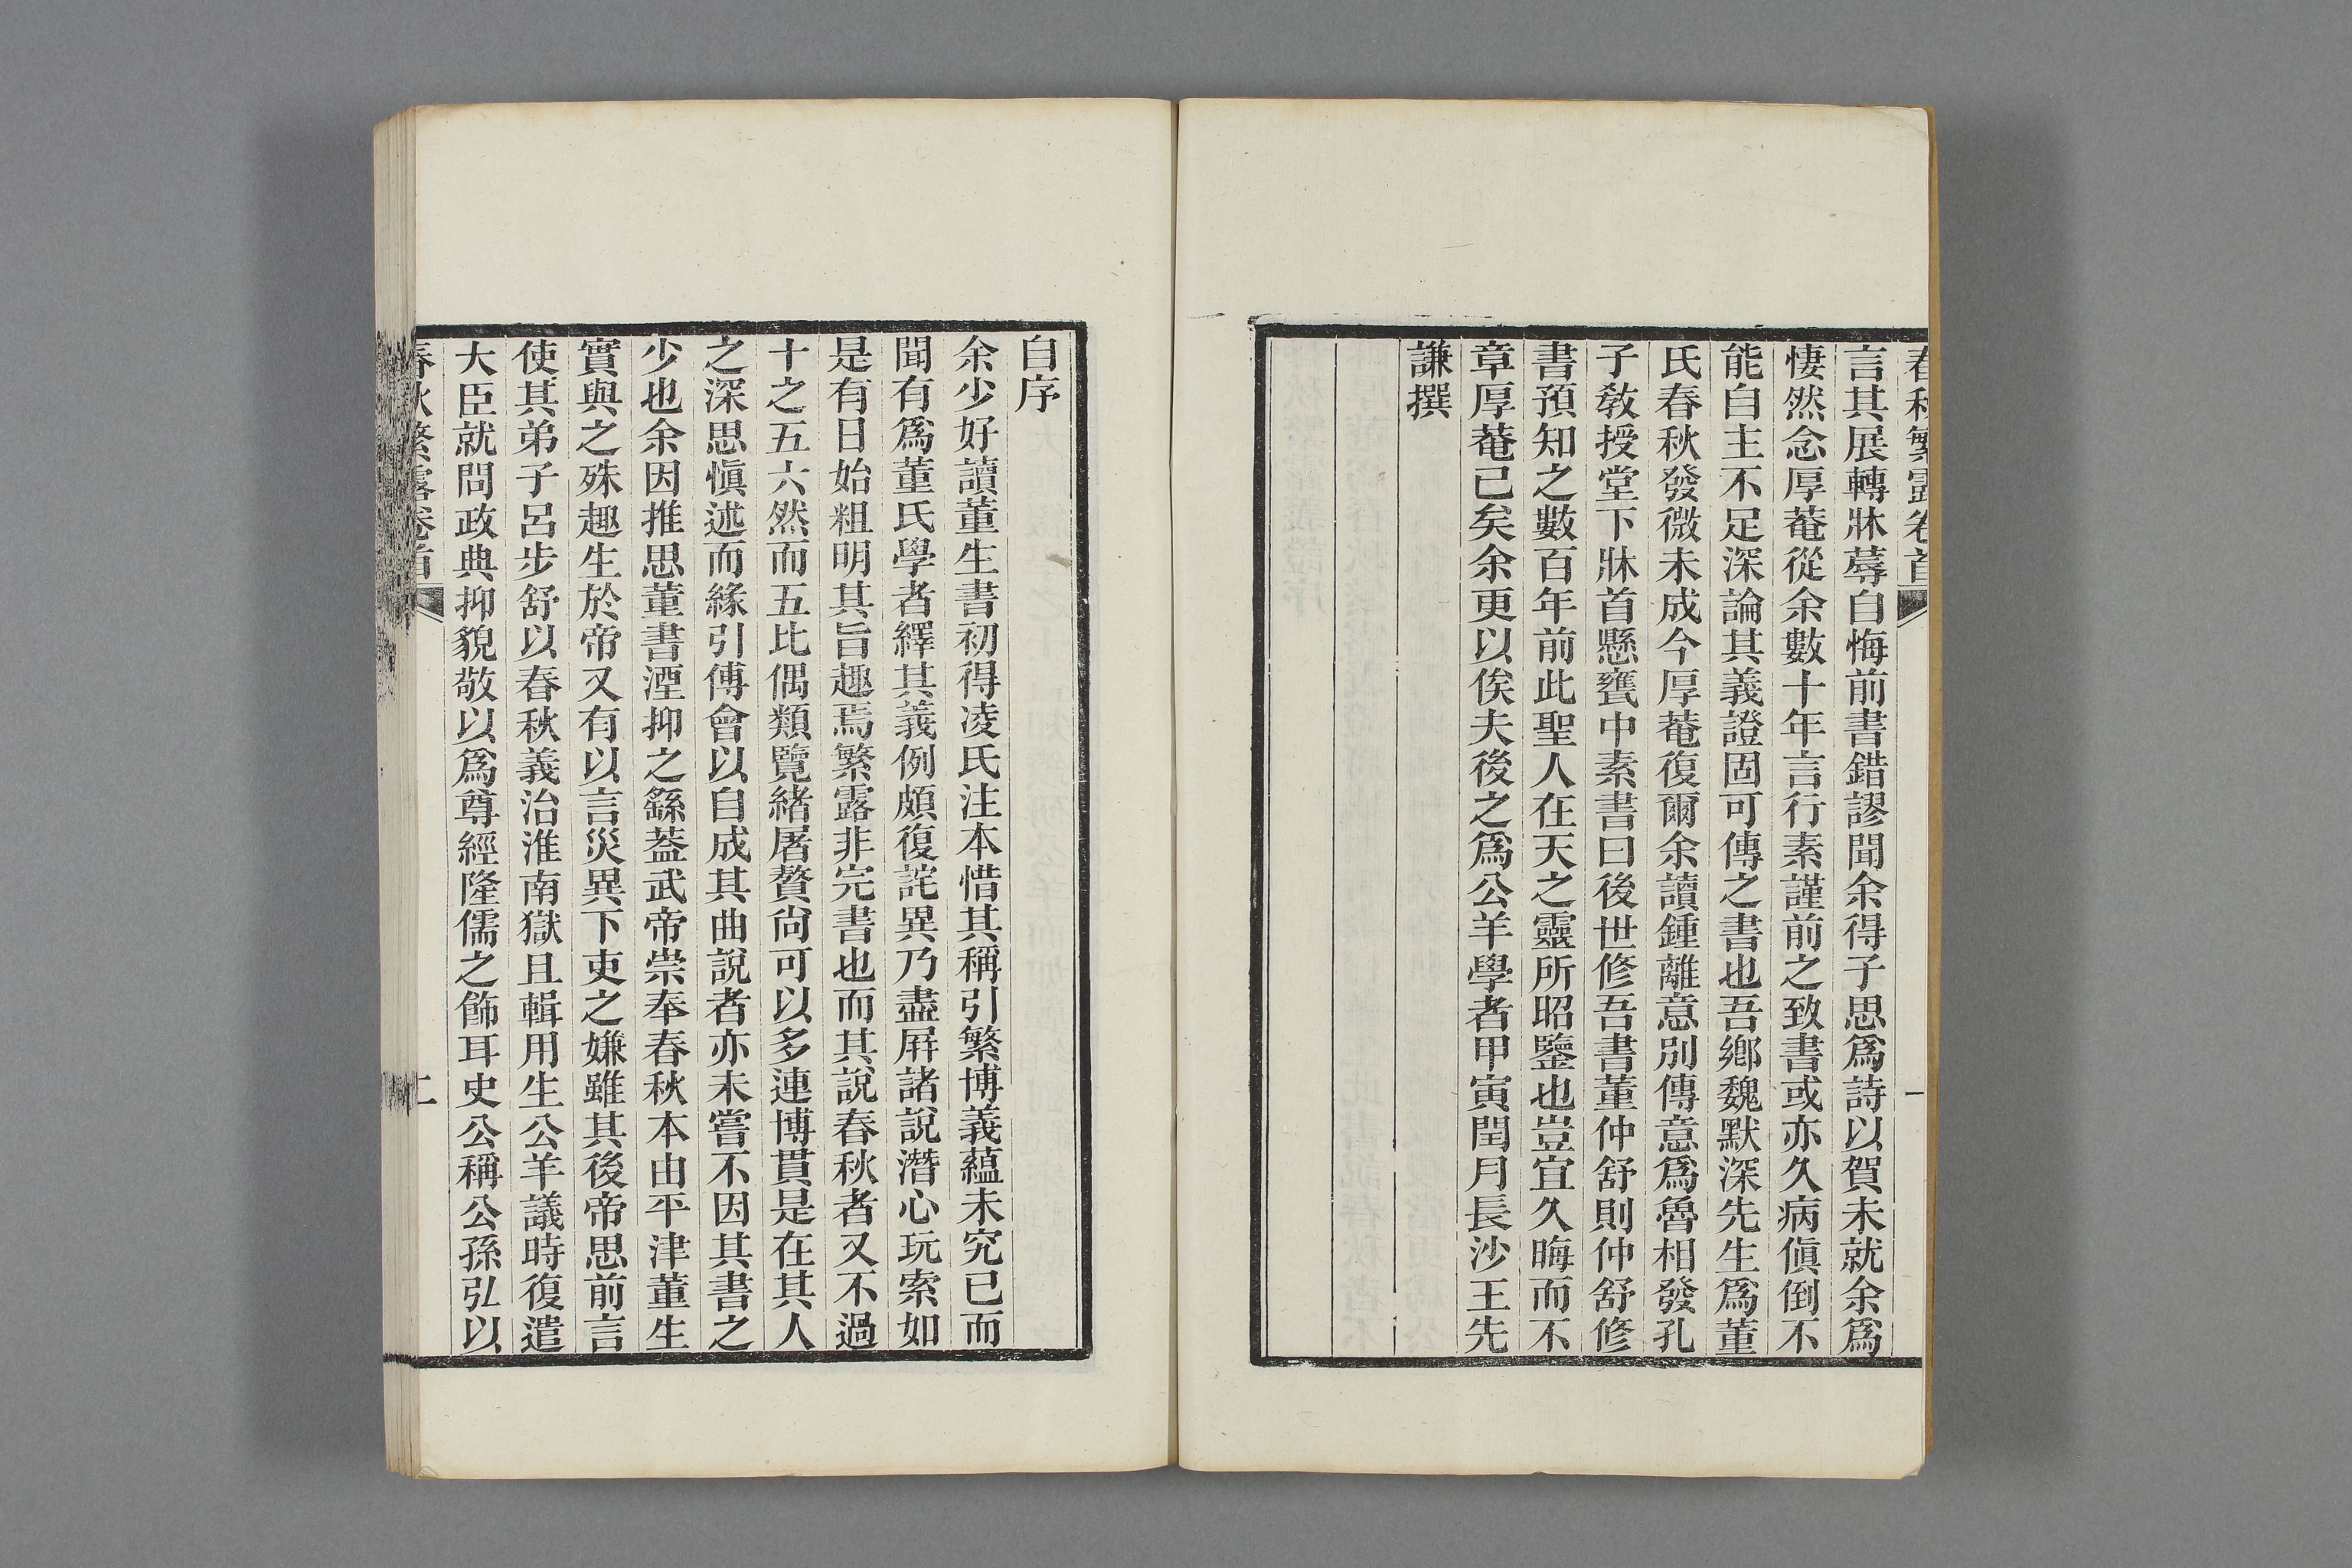 春秋繁露卷首
一
言其展轉牀蓐自悔前書錯謬聞余得子思爲詩以賀未就余爲
悽然念厚菴從余數十年言行素謹前之致書或亦久病傎倒不
能自主不足深論其義證固可傳之書也吾鄉魏默深先生爲董
氏春秋發微未成今厚菴復爾余讀鍾離意別傳意爲魯相發孔
子敎授堂下牀首懸甕中素書曰後世修吾書董仲舒則仲舒修
書預知之數百年前此聖人在天之靈所昭鑒也豈宜久晦而不
章厚菴已矣余更以俟夫後之爲公羊學者甲寅閏月長沙王先
謙撰
自序
余少好讀董生書初得凌氏注本惜其稱引繁博義蘊未究已而
聞有爲董氏學者繹其義例頗復詫異乃盡屛諸說潛心玩索如
是有日始粗明其旨趣焉繁露非完書也而其說春秋者又不過
十之五六然而五比偶類覽緒屠贅尙可以多連博貫是在其人
之深思愼述而緣引傅會以自成其曲說者亦未嘗不因其書之
少也余因推思董書湮抑之繇葢武帝崇奉春秋本由平津董生
實與之殊趣生於帝又有以言災異下吏之嫌雖其後帝思前言
使其弟子呂步舒以春秋義治淮南獄且輯用生公羊議時復遣
大臣就問政典抑貌敬以爲尊經隆儒之飾耳史公稱公孫弘以
春秋繁露卷首
二